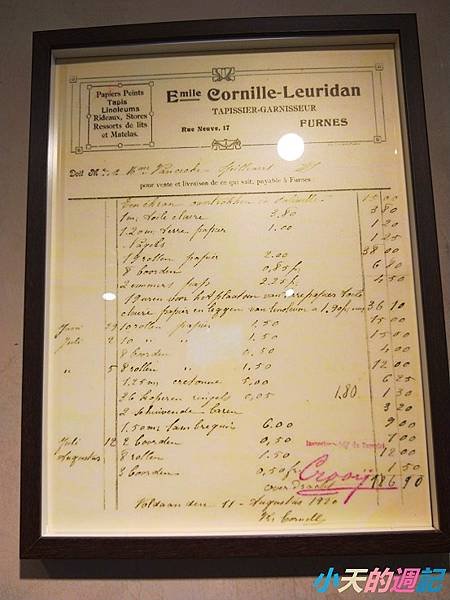 Papiers Peints
Tapis
Linoleums
Rideaux, Stores
Ressorts de lits
et Matelas.
Emile Cornille-Leuridan
TAPISSIER-GARNISSEUR
Rue Neuve, 17 FURNES
Doit M
pour vente et livraison de ce qui suit, payable à Furnes.
15 00
1 m. toile claire 3.80 3 80
1.20 m. terre papier 1.00 1 20
nagels 1 25
19 rollen papier 2.00 38 00
8 boorden 0,85 fr. 6 80
2 2.25 fr. 4 50
19 uren voor het plaatsen van papier
claire papier en leggen van linoleum a 1.90 fr. 36 10
Juni 29 10 rollen papier 1.50 15 00
Juli 2 10 " " 1.50 15 00
8 boorden 0.50 4 00
" 5 8 rollen 1.50 12 00
1.25 m. cretonne 5.00 6 25
26 koperen ringels 0,05 1.80 1 30
2 schuivende 3 20
1.50 m. lambrequin 6.00 9 00
Juli 12 2 boorden 0,50 1 00
Augustus 8 rollen 1.50 12 00
3 boorden 0,50 fr. 1 50
overdracht 186 90
Voldaan den 11 Augustus 1920
Cornille
小天的週記